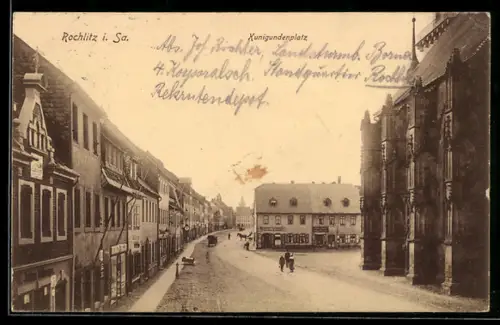 Rochlitz i. Sa.
Kunigundenplatz
Abs. Joh. Büchler, Landsturmb. Borna
4. Korporalsch. Standquartier Rochlitz
Rekrutendepot.